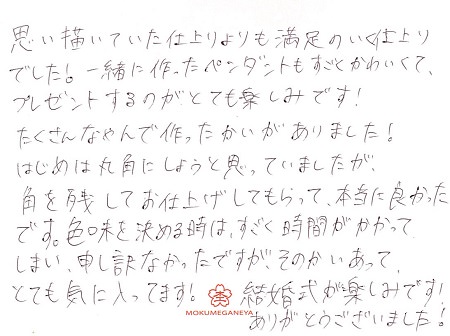 思い描いていた仕上りよりも満足のいく仕上り
でした！一緒に作ったペンダントもすごくかわいくて、
プレゼントするのがとても楽しみです！
たくさんなやんで作ったかいがありました！
はじめは丸角にしようと思っていましたが、
角を残してお仕上げしてもらって、本当に良かった
です。色味を決める時は、すごく時間がかかって
しまい、申し訳なかったですが、そのかいあって、
とても気に入ってます！ 結婚式が楽しみです！
MOKUMEGANEYA
ありがとうございました！